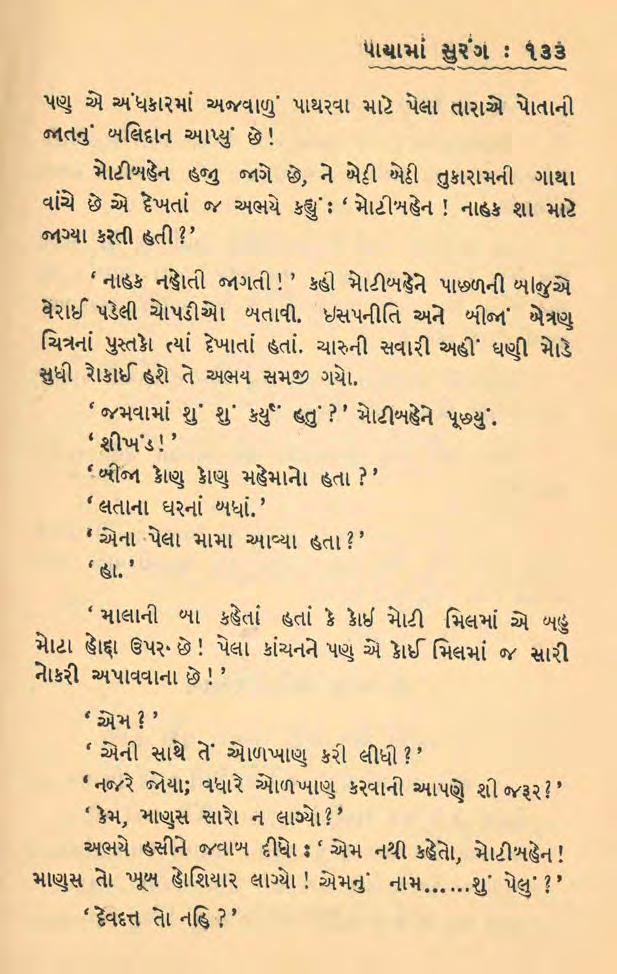 પાયામાં સુરંગ : ૧૩૩
પણ એ અંધકારમાં અજવાળું પાથરવા માટે પેલા તારાએ પોતાની
જાતનું બલિદાન આપ્યું છે!
મોટીબહેન હજુ જાગે છે, ને બેઠી બેઠી તુકારામની ગાથા
વાંચે છે એ દેખતાં જ અભયે કહ્યું: ‘મોટીબહેન! નાહક શા માટે
જાગ્યા કરતી હતી?’
‘નાહક નહોતી જાગતી!’ કહી મોટીબહેને પાછળની બાજુએ
વેરાઈ પડેલી ચોપડીઓ બતાવી. ઇસપનીતિ અને બીજાં બેત્રણ
ચિત્રનાં પુસ્તકો ત્યાં દેખાતાં હતાં. ચારુની સવારી અહીં ઘણી મોડે
સુધી રોકાઈ હશે તે અભય સમજી ગયો.
‘જમવામાં શું શું કર્યું હતું?’ મોટીબહેને પૂછ્યું.
‘શીખંડ!’
‘બીજા કોણ કોણ મહેમાનો હતા?’
‘લતાના ઘરનાં બધાં.’
‘એના પેલા મામા આવ્યા હતા?’
‘હા.’
‘માલાની બા કહેતાં હતાં કે કોઈ મોટી મિલમાં એ બહુ
મોટા હોદ્દા ઉપર છે! પેલા કાંચનને પણ એ કોઈ મિલમાં જ સારી
નોકરી અપાવવાના છે!’
‘એમ?’
‘એની સાથે તેં ઓળખાણ કરી લીધી?’
‘નજરે જોયા; વધારે ઓળખાણ કરવાની આપણે શી જરૂર?’
‘કેમ, માણસ સારો ન લાગ્યો?’
અભયે હસીને જવાબ દીધો : ‘એમ નથી કહેતો, મોટીબહેન!
માણસ તો ખૂબ હોશિયાર લાગ્યો! એમનું નામ......શું પેલું?’
‘દેવદત્ત તો નહિ?’